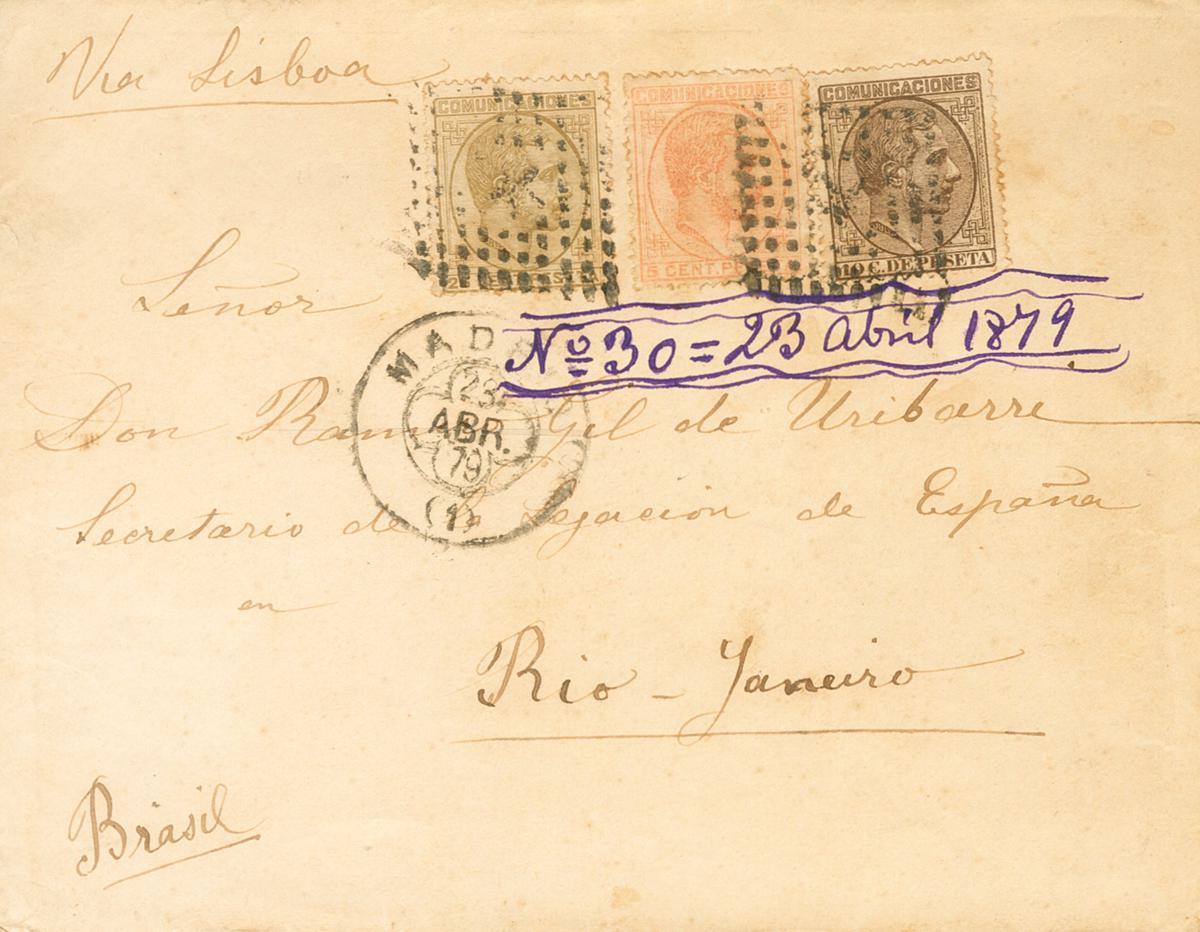 Via Lisboa
COMUNICACIONES
COMUNICACIONES
5 CENT.
COMUNICACIONES
10 C. DE PESETA
Señor
Nº 30 = 23 Abril 1879
MAD
23
ABR.
79
(1)
Don Gil de Uribarre
Secretario de la Legacion de España
en
Rio - Janeiro
Brasil